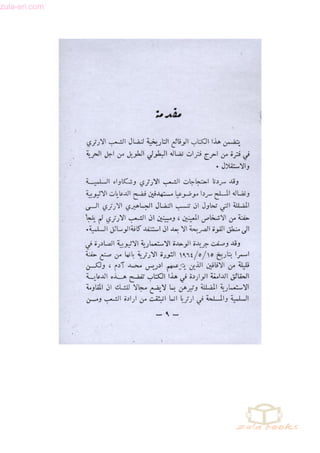 zula-eri.com
مقدمة
يتضمن هذا الكتاب الوقائع التاريخية لنضال الشعب الارتري
في فترة من احرج فترات نضاله البطولي الطويل من اجل الحرية
والاستقلال .
وقد سردنا احتجاجات الشعب الارتري وشكاواه السلميـــة
ونضاله المسلح سردا موضوعيا مستهدفين فضح الدعايات الاثيوبية
المضللة التي تحاول ان تنسب النضال الجماهيري الارتري الـــى
حفنة من الاشخاص المعينين ، ومبينين ان الشعب الارتري لم يلجأ
الى منطق القوة الصريحة الا بعد ان استنفد كافة الوسائل السلمية.
وقد وصفت جريدة الوحدة الاستعمارية الاثيوبية الصادرة في
اسمرا بتاريخ ١٩٦٤/٥/١٥ الثورة الارترية بانها من صنع حفنة
قليلة من الافاقين الذين يتزعمهم ادريس محمد آدم ، ولكـــن
الحقائق الدامغة الواردة في هذا الكتاب تفضح هـــذه الدعايـــة
الاستعمارية المضللة وتبرهن بما لا يضع مجالا للشك ان المقاومة
السلمية والمسلحة في ارتريا انما انبثقت من ارادة الشعب ومـــن
— ٩ —
zula books